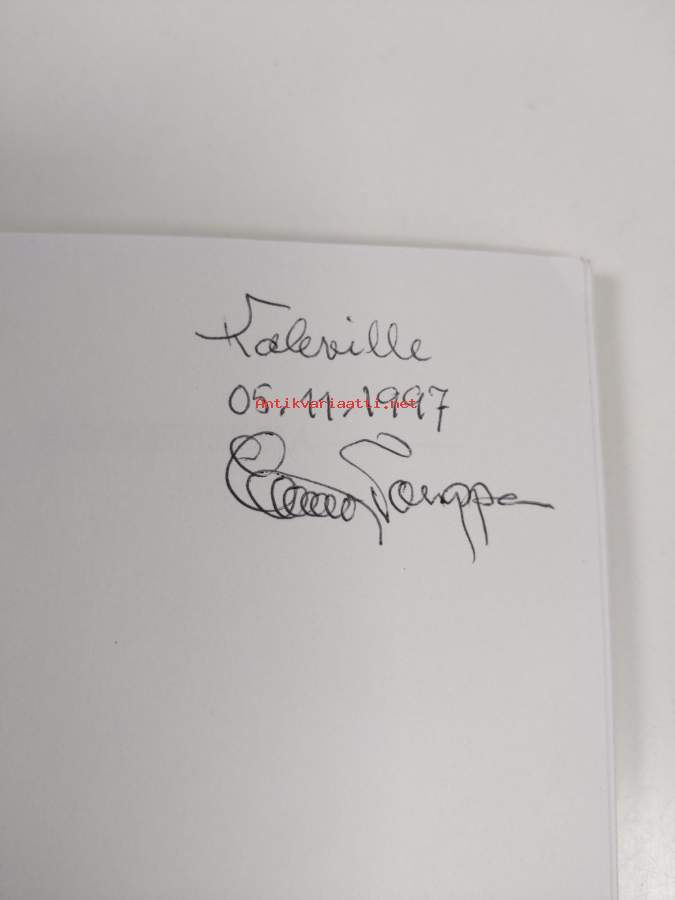 Kaleville
05.11.1997
Antikvariaatti.net